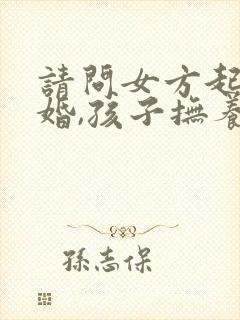 請問女方起
婚,孩子撫養
孫志保